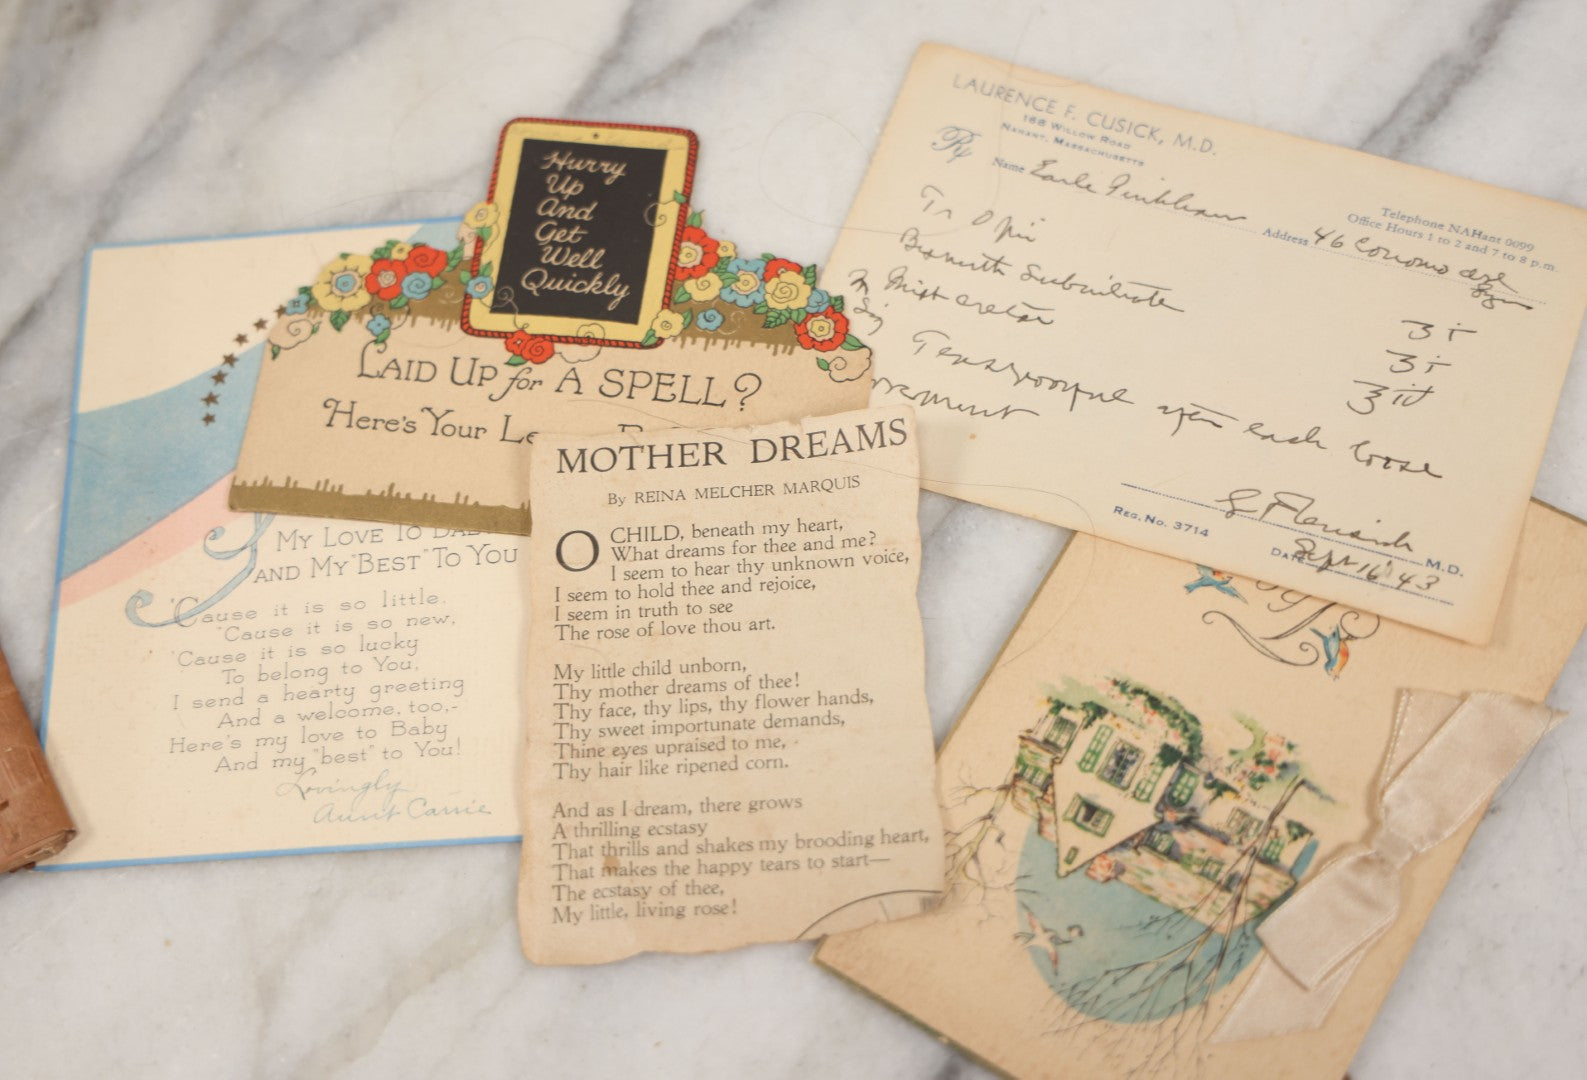 Hurry
Up
And
Get
Well
Quickly
LAID UP for A SPELL?
Here's Your
MY LOVE TO
AND MY "BEST" TO YOU
'Cause it is so little,
'Cause it is so new,
'Cause it is so lucky
To belong to You,
I send a hearty greeting
And a welcome, too,-
Here's my love to Baby
And my "best" to You!
Lovingly
Aunt Carrie
MOTHER DREAMS
By REINA MELCHER MARQUIS
O CHILD, beneath my heart,
What dreams for thee and me?
I seem to hear thy unknown voice,
I seem to hold thee and rejoice,
I seem in truth to see
The rose of love thou art.
My little child unborn,
Thy mother dreams of thee!
Thy face, thy lips, thy flower hands,
Thy sweet importunate demands,
Thine eyes upraised to me,
Thy hair like ripened corn.
And as I dream, there grows
A thrilling ecstasy
That thrills and shakes my brooding heart,
That makes the happy tears to start—
The ecstasy of thee,
My little, living rose!
LAURENCE F. CUSICK, M.D.
188 WILLOW ROAD
NAHANT, MASSACHUSETTS
Telephone NAHant 0099
Office Hours 1 to 2 and 7 to 8 p.m.
Name Earle
Address 46 Conomo ave
Tr Opii
Bismuth Subnitrate
Teaspoonful after each loose
movement
REG. NO. 3714
M.D.
DATE Sept 16 '43